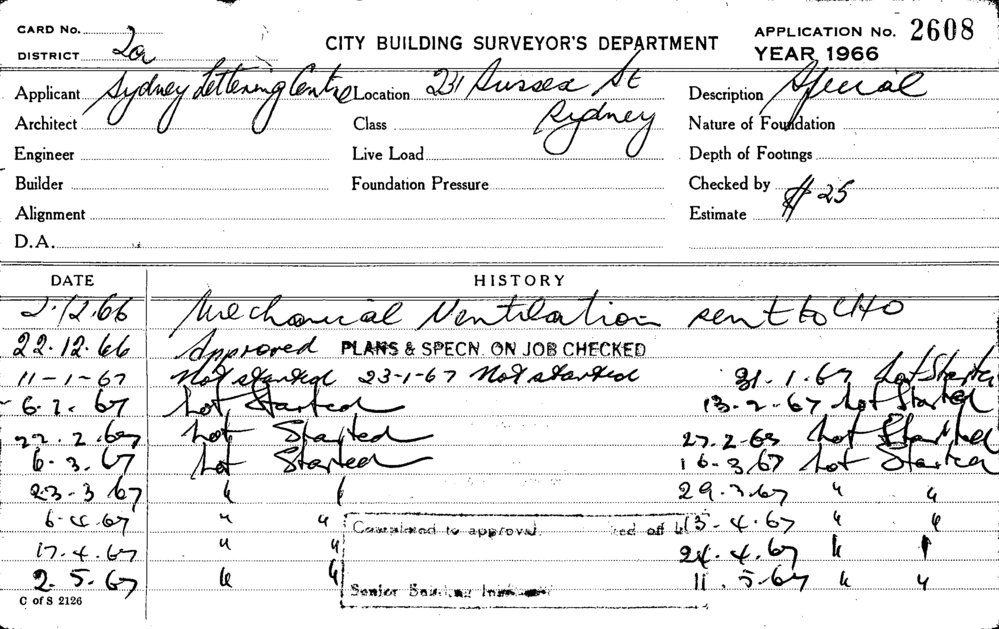 CARD No. APPLICATION No. 2608
DISTRICT 2a CITY BUILDING SURVEYOR'S DEPARTMENT YEAR 1966
Applicant Sydney Lettering Centre Location 231 Sussex St Description Special
Architect Class Sydney Nature of Foundation
Engineer Live Load Depth of Footings
Builder Foundation Pressure Checked by
Alignment Estimate $25
D.A.
DATE HISTORY
2.12.66 Mechanical Ventilation sent to CHO
22.12.66 Approved PLANS & SPECN. ON JOB CHECKED
11-1-67 Not started 23-1-67 Not started 31.1.67 Not Started
6.2.67 Not Started 13.2.67 Not Started
22.2.67 Not Started 27.2.67 Not Started
6.3.67 Not Started 16.3.67 Not Started
23.3.67 " " 29.3.67 " "
6.4.67 " " 13.4.67 " "
Completed to approval off
17.4.67 " " 24.4.67 " "
2.5.67 " " 11.5.67 " "
Senior Building
C of S 2126